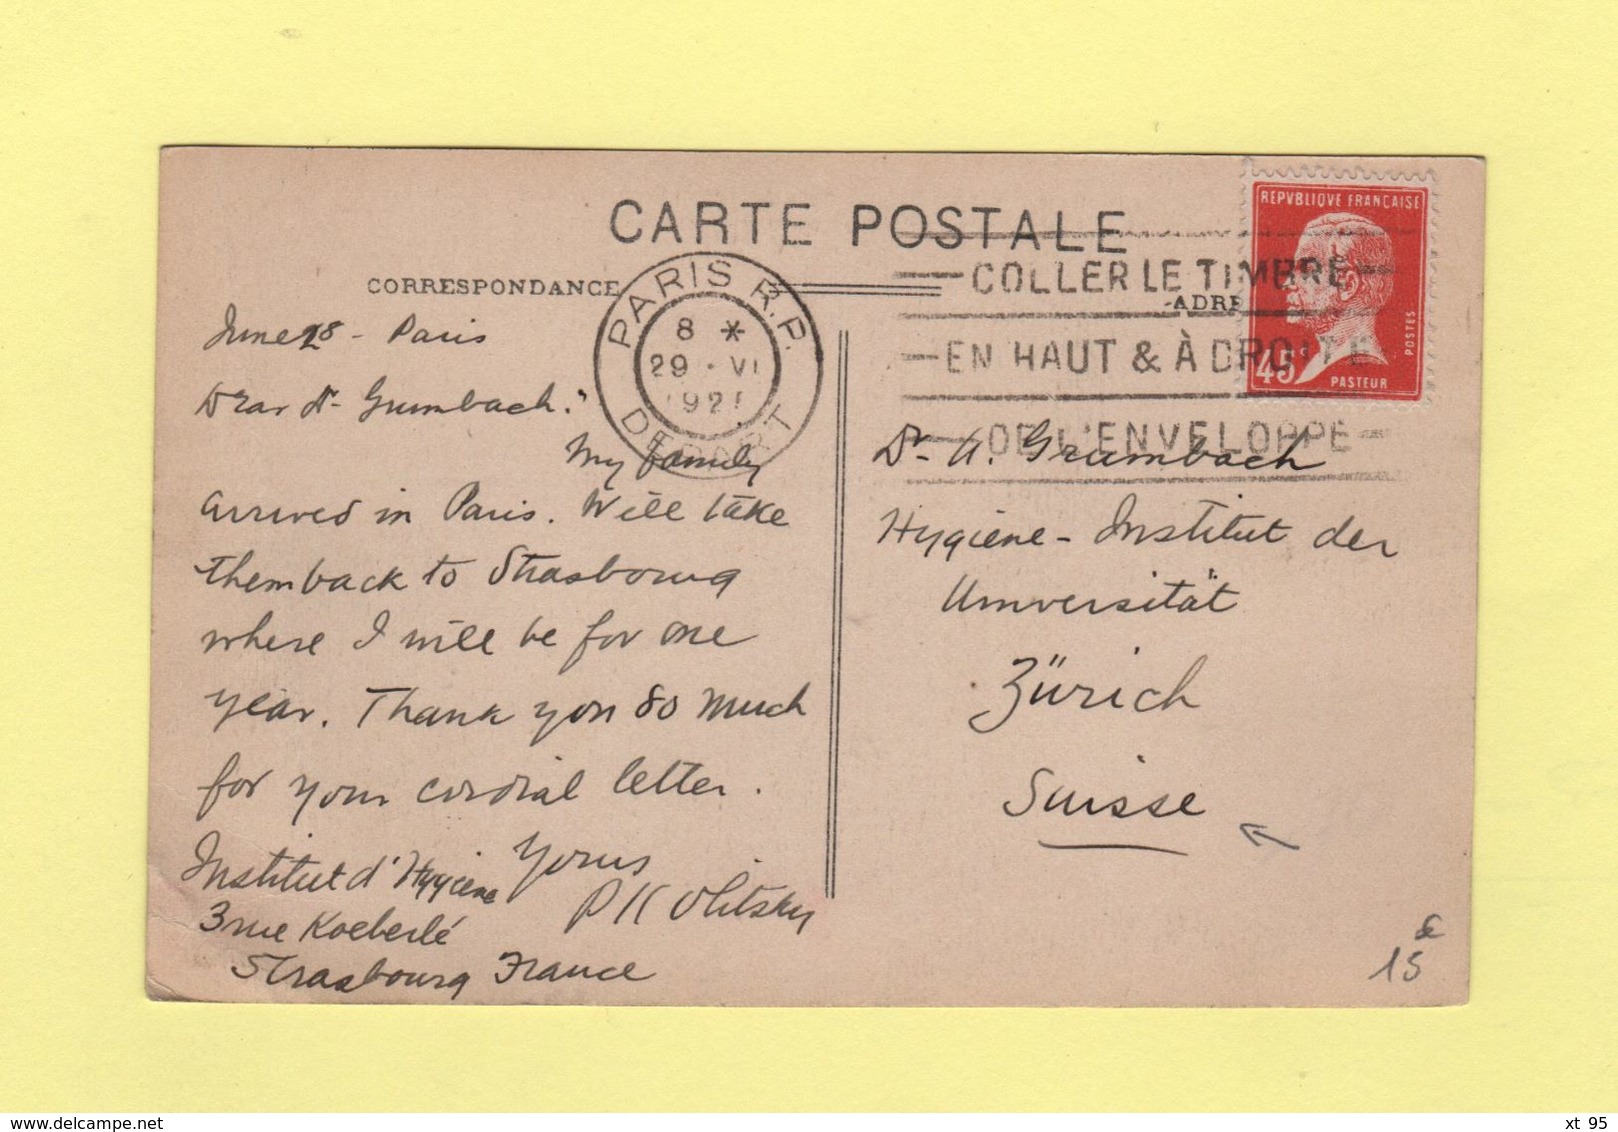 CARTE POSTALE
CORRESPONDANCE
ADRE
PARIS R.P.
8 *
29 · VI
192
DEPART
COLLER LE TIMBRE
EN HAUT & À DROITE
DE L'ENVELOPPE
REPVBLIQVE FRANÇAISE
45c
PASTEUR
POSTES
June 28 - Paris
Dear Dr Grumbach:
My family
arrived in Paris. Will take
them back to Strasbourg
where I will be for one
year. Thank you so much
for your cordial letter.
Yours
P K Olitsky
Institut d'Hygiene
3 rue Koeberlé
Strasbourg France
Dr A. Grumbach
Hygiene-Institut der
Universität
Zürich
Suisse
15
delcampe.net
xt 95